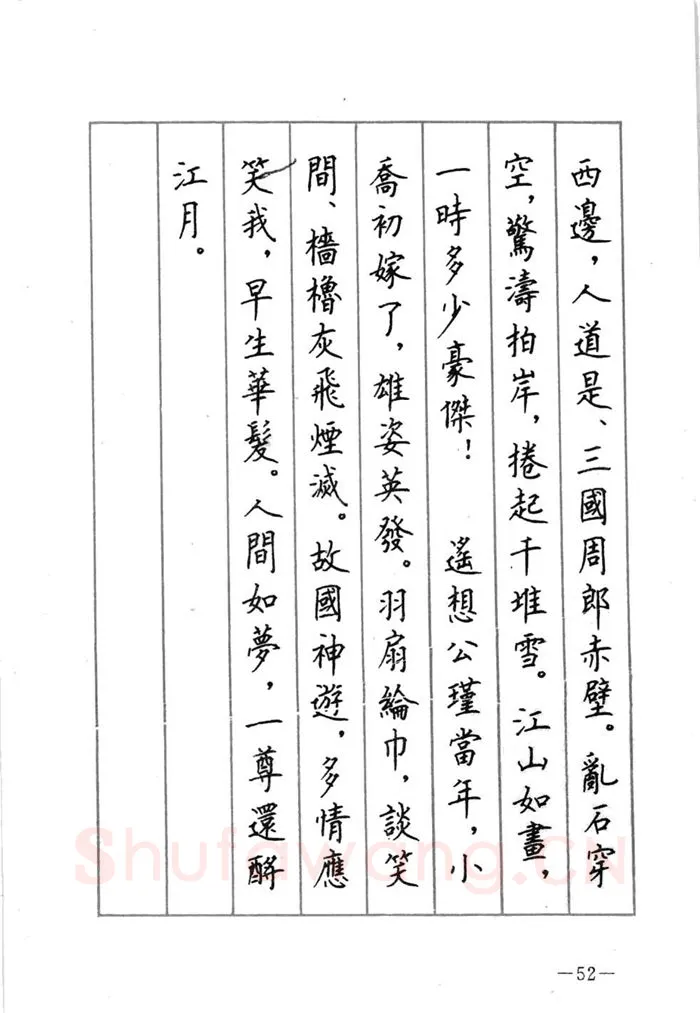 西邊，人道是、三國周郎赤壁。亂石穿
空，驚濤拍岸，捲起千堆雪。江山如畫，
一時多少豪傑！　遙想公瑾當年，小
喬初嫁了，雄姿英發。羽扇綸巾，談笑
間、檣櫓灰飛煙滅。故國神遊，多情應
笑我，早生華髮。人間如夢，一尊還酹
江月。
Shufawang.CN
—52—